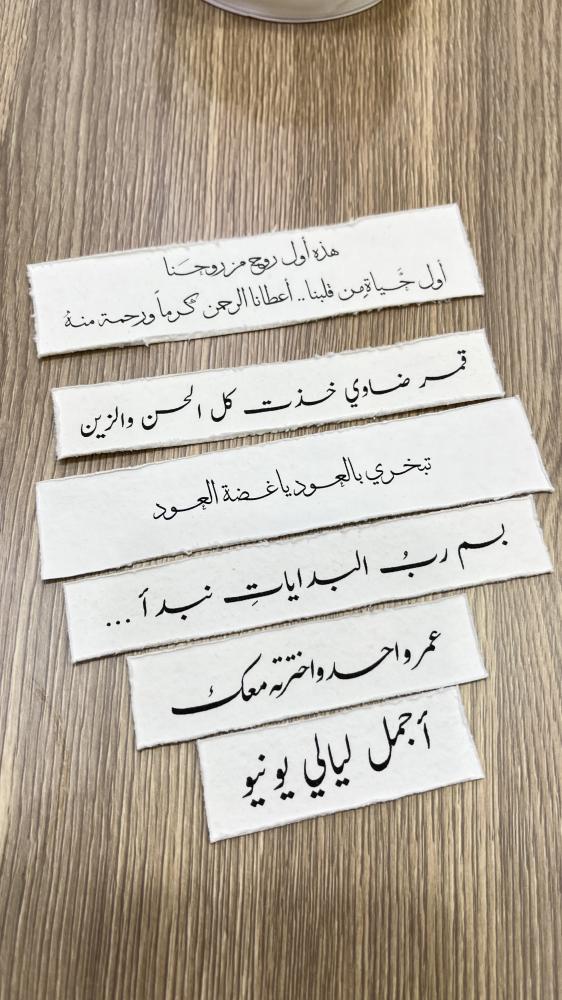 هذه أول روح من روحنا
أول حياة من قلبنا.. أعطانا الرحمن كرماً ورحمة منه
قمر ضاوي خذت كل الحسن والزين
تبخري بالعود ياغضة العود
بسم ربُ البداياتِ نبدأ ...
عمر واحد واخترته معك
أجمل ليالي يونيو